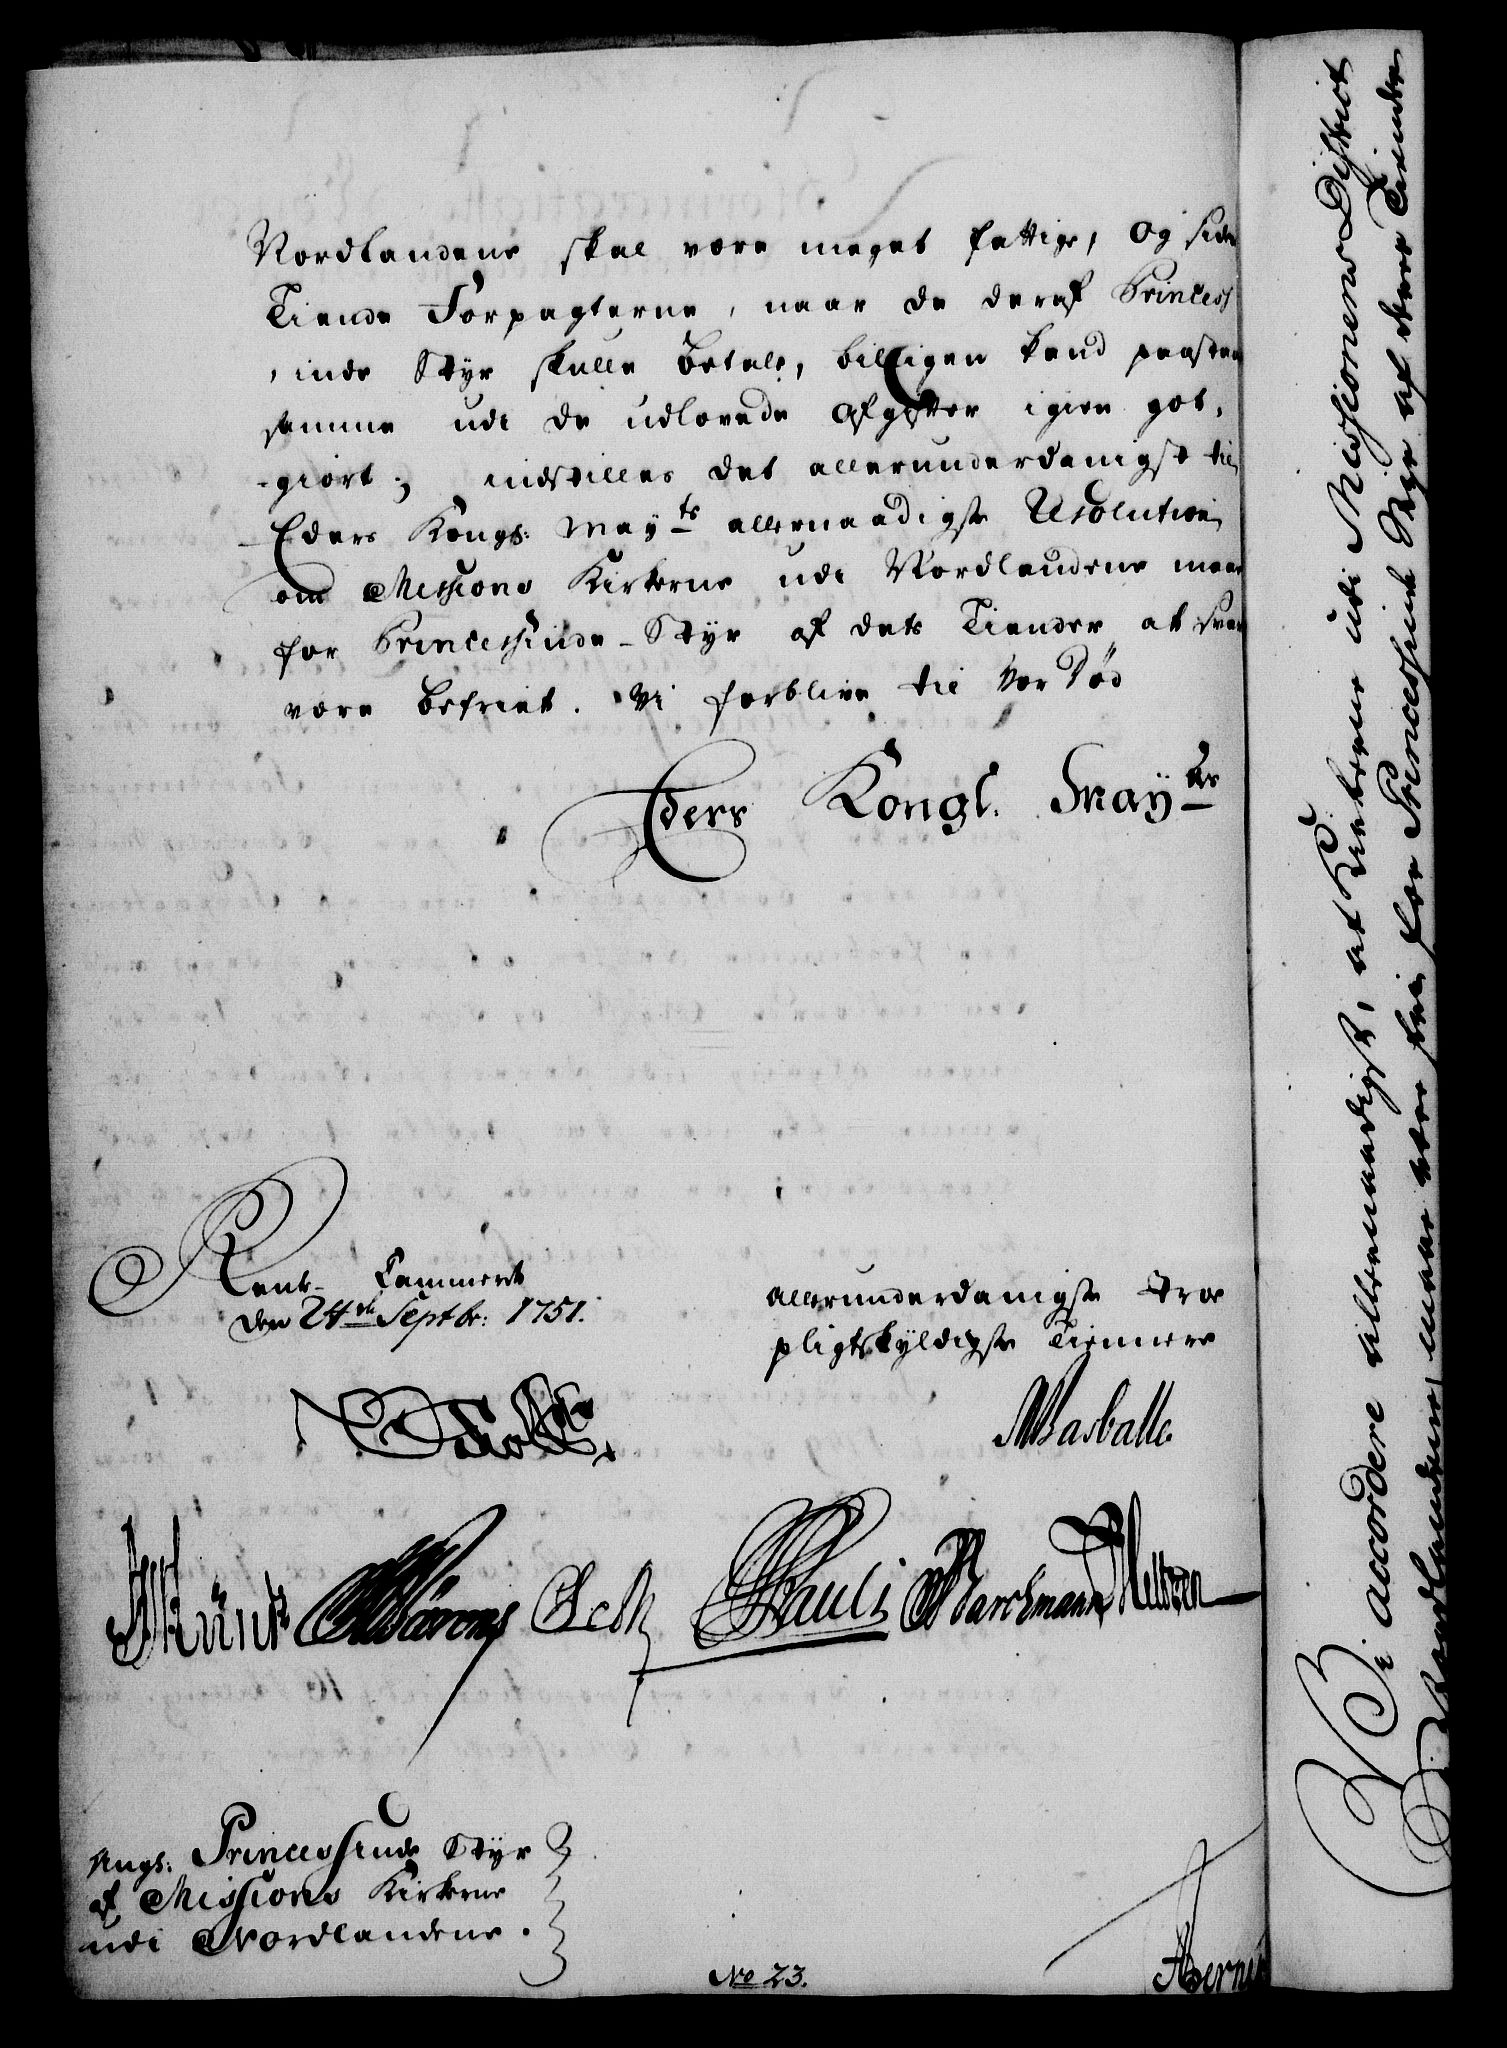 Nordlandene skal være meget fattige, og siden
Tiende Forpagterne, naar de deraf Princess
inde Styr skulle betale, billigen kand paastaae
samme udi de udlovede Afgifter igien got,
-giort; indstilles det allerunderdanigst til
Eders Kongl: May^ts allernaadigste Resolution
om Missions Kirkerne udi Nordlandene maae
for Princessinde-Styr af dets Tiender at svare
være befriet. Vi forblive til vor Død
Eders Kongl. May^ts
Rente Cammeret
den 24^de Septbr: 1751.
allerunderdanigste troe
pligtskyldigste Tiennere
Barchmann
Pauli
Angl: Princessinde Styr
af Missions Kirkerne
udi Nordlandene.
No 23.
Vi accordere allernaadigst, at Kirkerne udi Missionens District
i Nordlandene, maae være frie for Princessinde Styr af deres Tiender